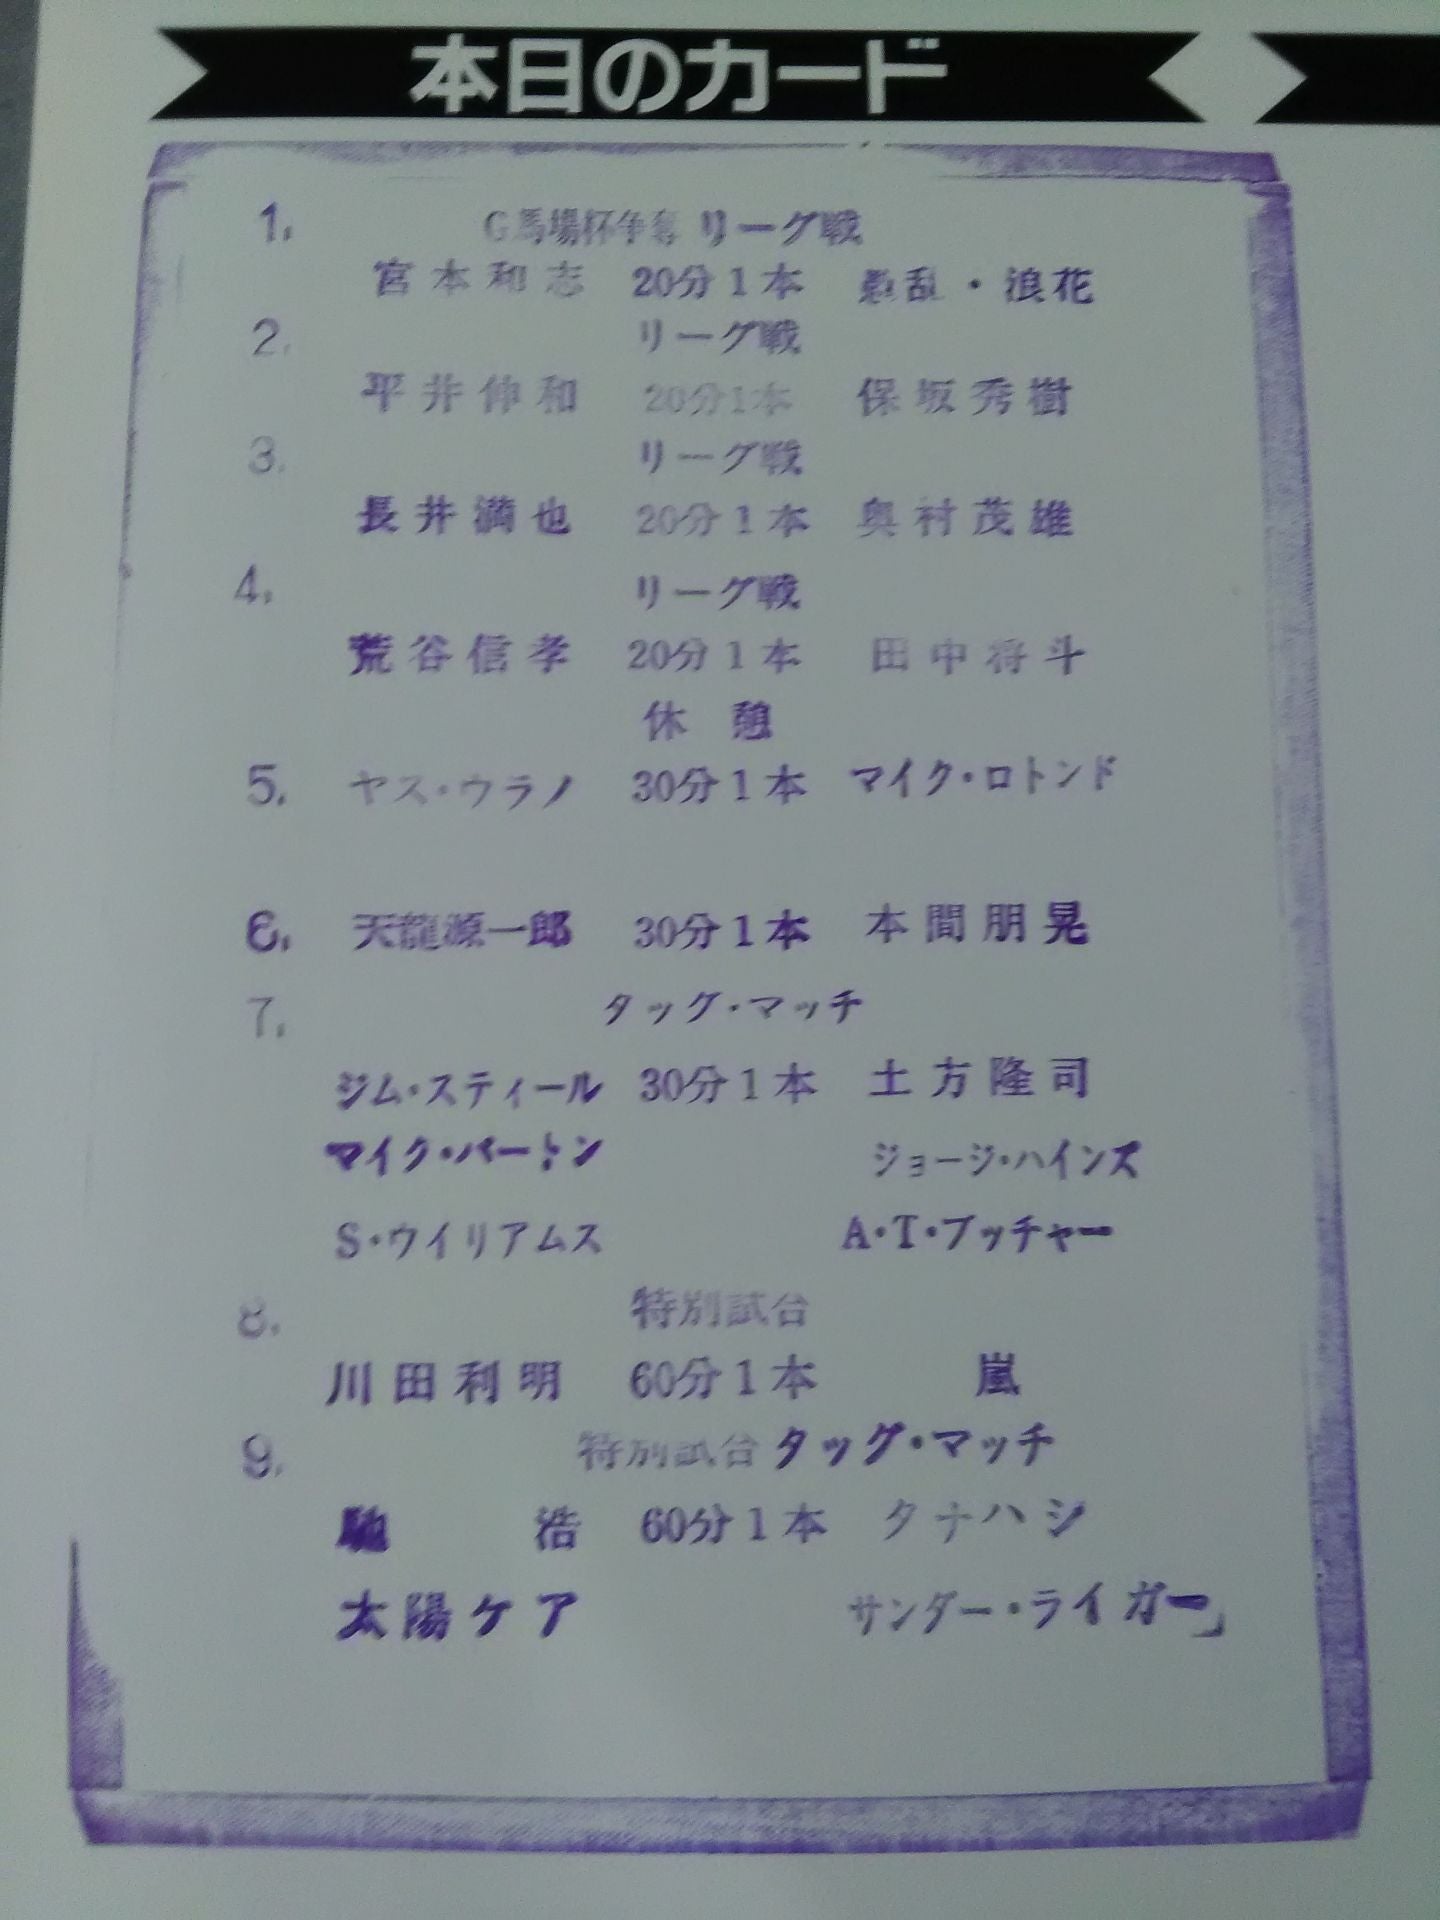 本日のカード
1. G馬場杯争奪 リーグ戦
宮本和志 20分1本 愚乱・浪花
2. リーグ戦
平井伸和 20分1本 保坂秀樹
3. リーグ戦
長井満也 20分1本 奥村茂雄
4. リーグ戦
荒谷信孝 20分1本 田中将斗
休憩
5. ヤス・ウラノ 30分1本 マイク・ロトンド
6. 天龍源一郎 30分1本 本間朋晃
7. タッグ・マッチ
ジム・スティール 30分1本 土方隆司
マイク・バートン ジョージ・ハインズ
S・ウイリアムス A・T・ブッチャー
8. 特別試合
川田利明 60分1本 嵐
9. 特別試合 タッグ・マッチ
馳浩 60分1本 タナハシ
太陽ケア サンダー・ライガー